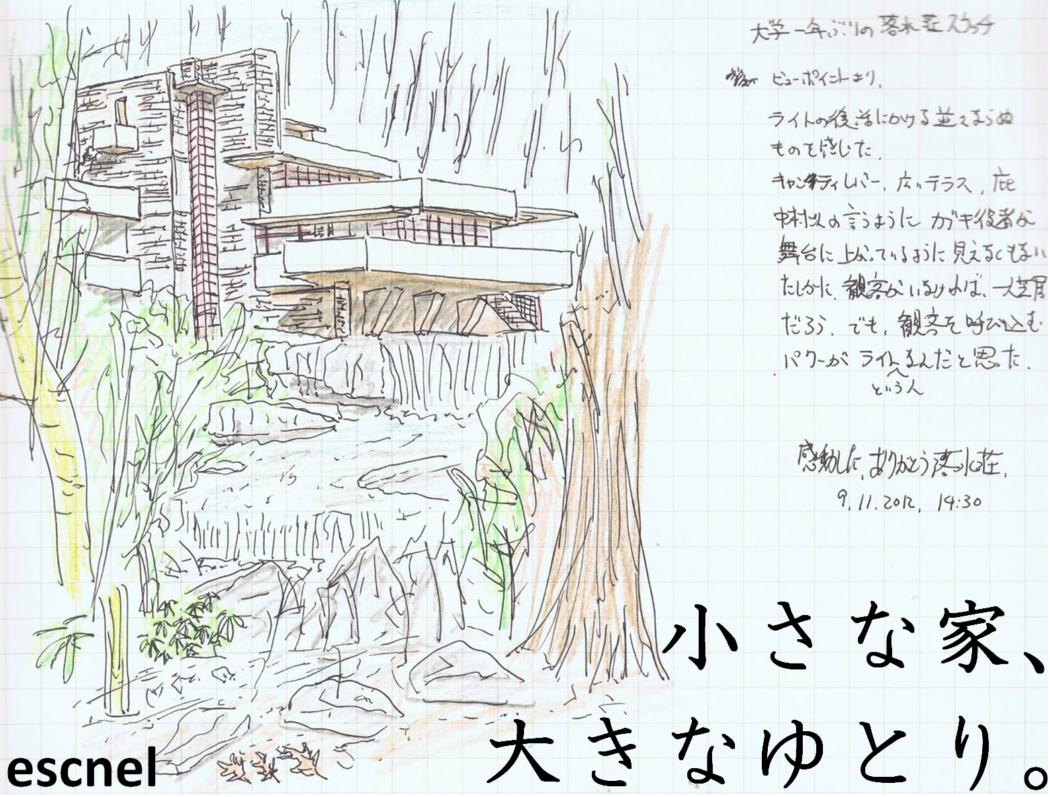 大学一年ぶりの落水荘スケッチ
ビューポイントより。
ライトの復活にかける並々ならぬ
ものを感じた。
キャンティレバー、広いテラス、庇
の言うように ガキ役者が
舞台に上がっているように見えなくもない
たしかに、観客がいなければ、一人芝居
だろう。でも、観客を呼び込む
パワーが ライトなんだと思た。
という人
感動した。ありがとう落水荘。
9.11.2012. 14:30
小さな家、
大きなゆとり。
escnel